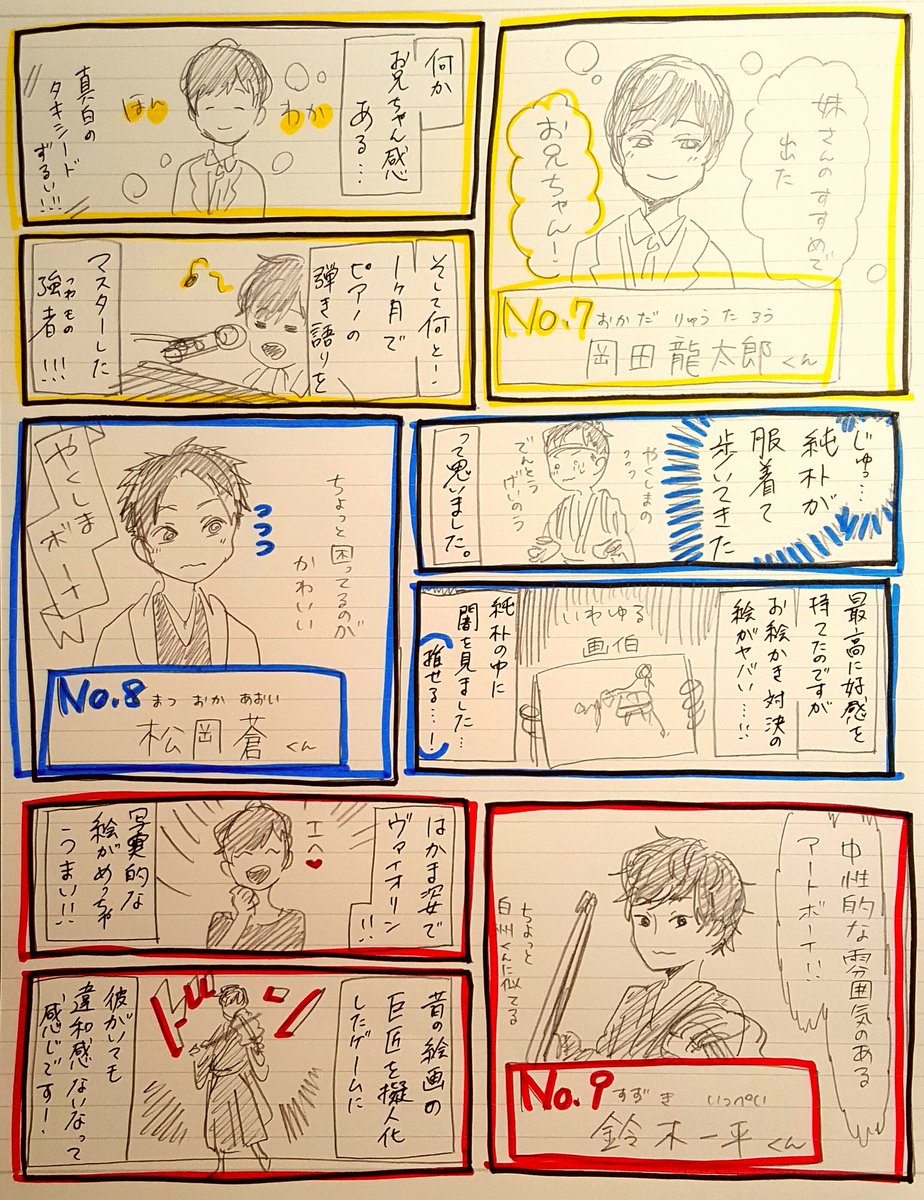 妹さんのすすめで
出た
お兄ちゃん!
No.7
おかだ りゅうたろう
岡田龍太郎くん
何か
お兄ちゃん感
ある…
ほん
わか
真白の
タキシード
ずるい!!!
そして何と!
1ヶ月で
ピアノの
弾き語りを
マスターした
つわもの
強者!!!
じゅっ…
純朴が
服着て
歩いてきた
やくしまの
でんとう
げいのう
って思いました。
やくしまボーイ
ちょっと困ってるのが
かわいい
No.8
まつ おか あおい
松岡蒼くん
最高に好感を
持てたのですが
お絵かき対決の
絵がヤバい…!!
いわゆる
画伯
純朴の中に
闇を見ました…
(推せる…!)
中性的な雰囲気のある
アートボーイ!!
ちょっと
白州くんに似てる
No.9
すずき いっぺい
鈴木一平くん
はかま姿で
ヴァイオリン!!
エヘ♥
写実的な
絵がめっちゃ
うまい!!
昔の絵画の
巨匠を擬人化
したゲームに
ドーン
彼がいても
違和感ないなって
感じです!